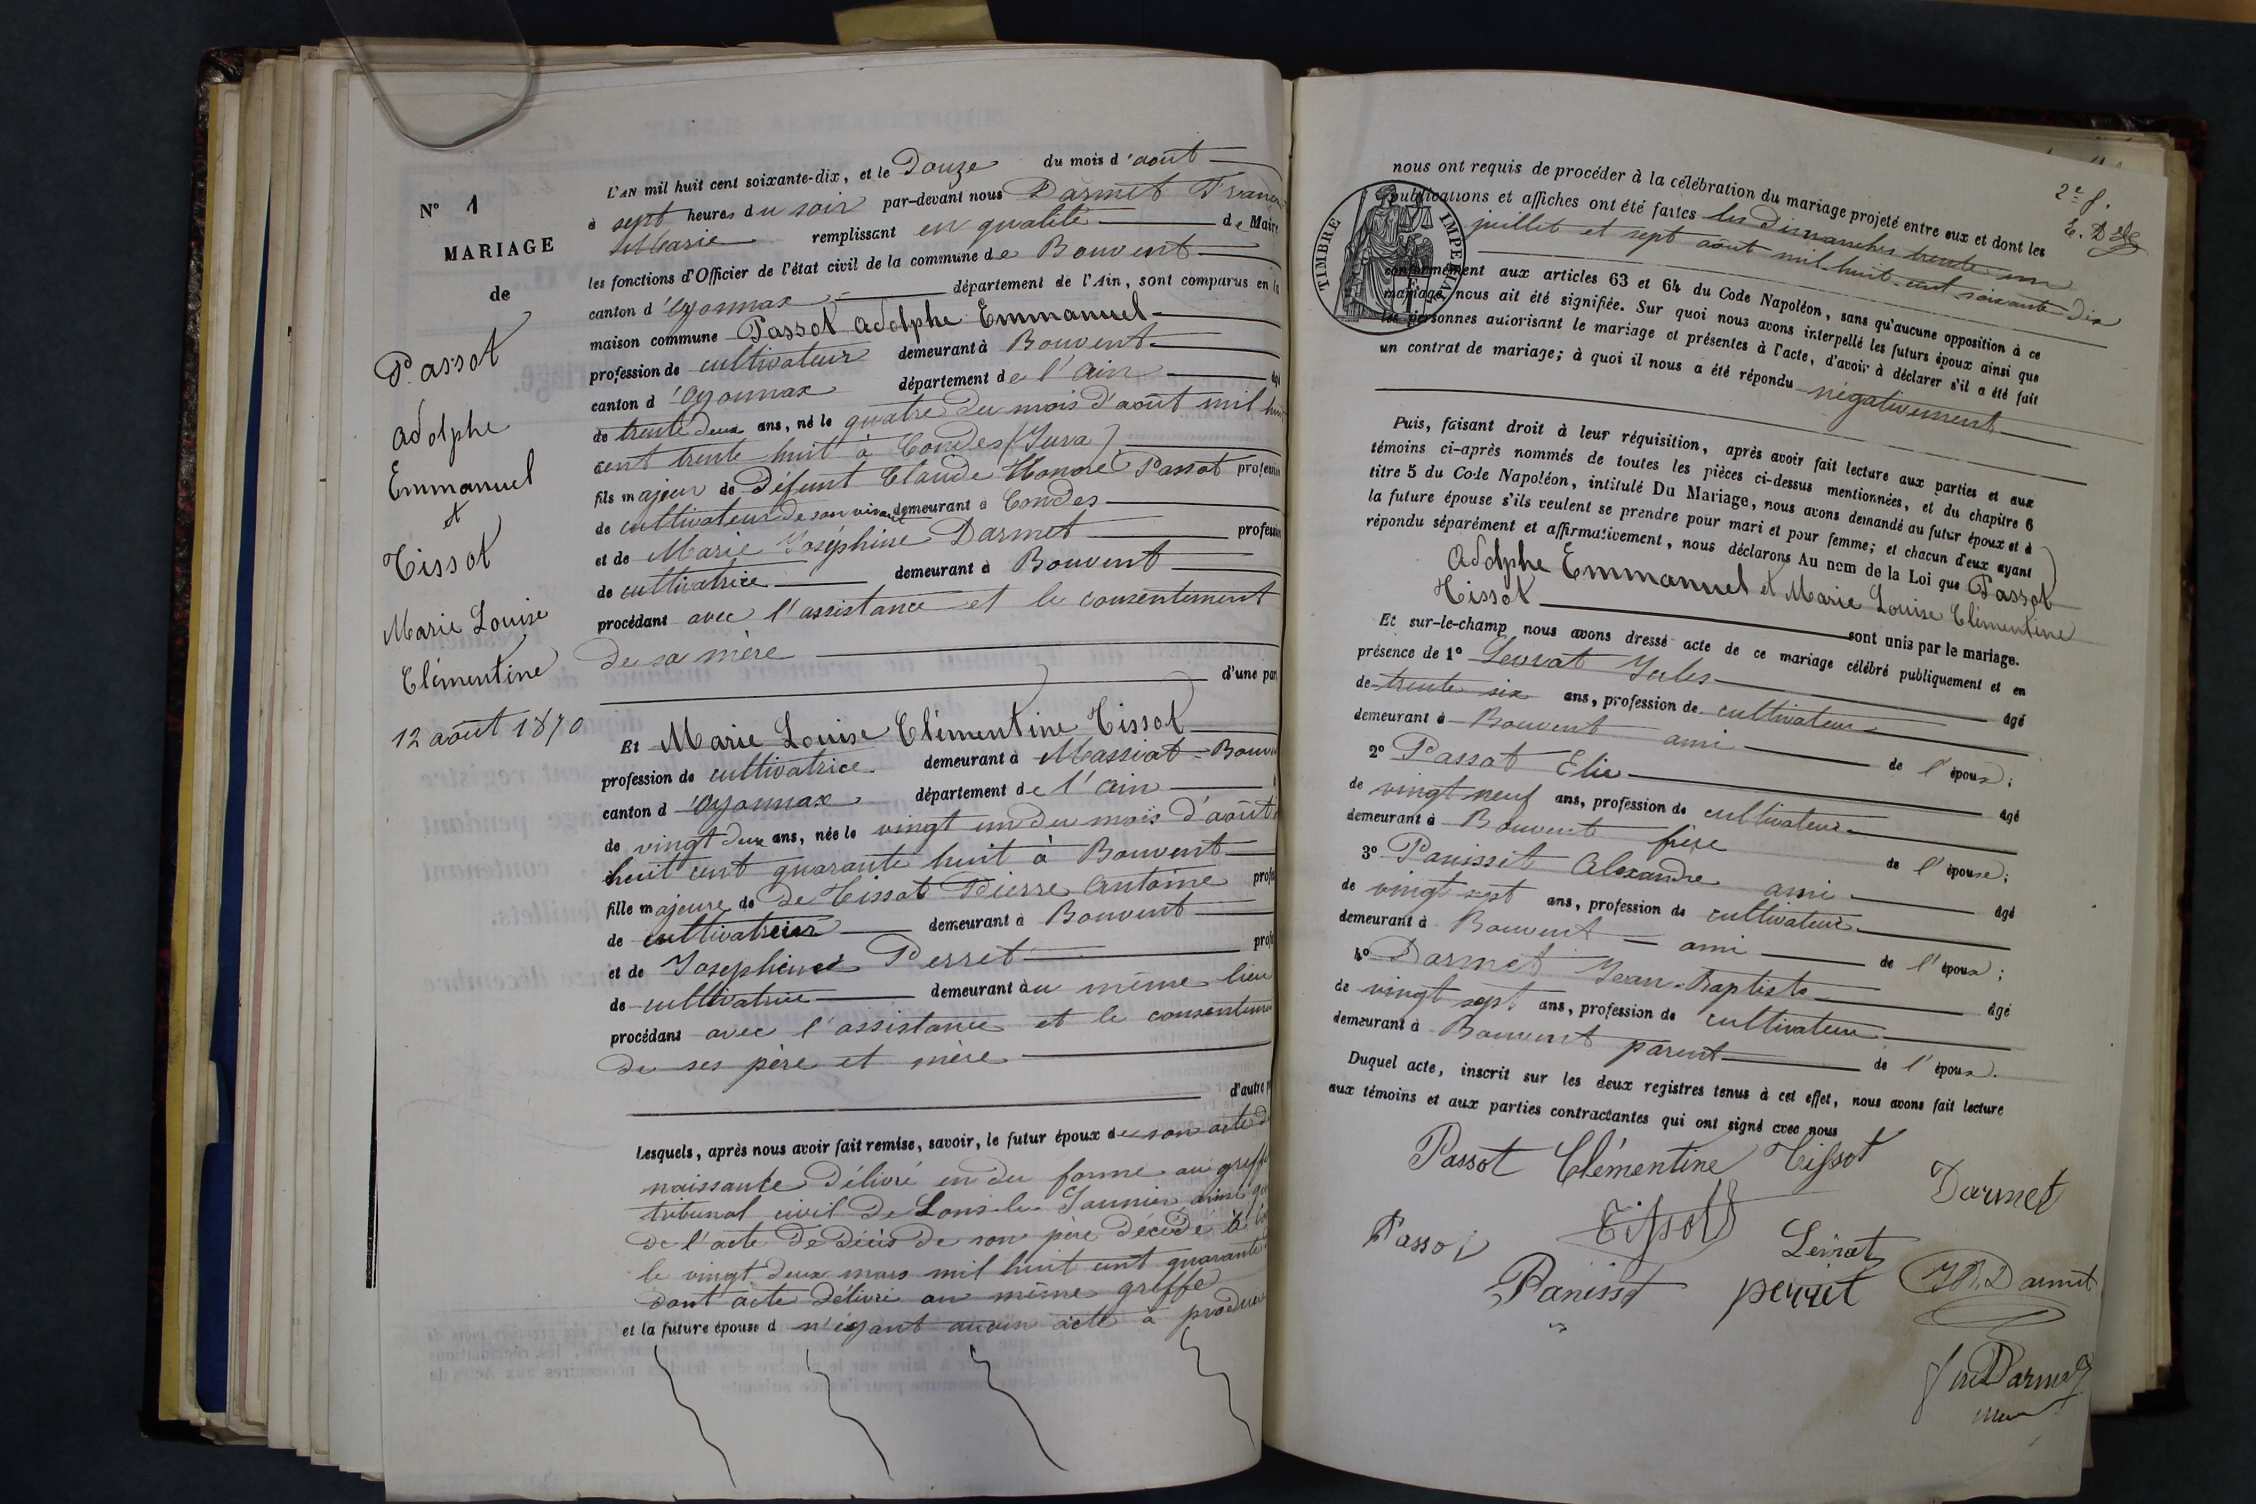 N° 1
MARIAGE
de
Passot
Adolphe
Emmanuel
et
Tissot
Marie Louise
Clémentine
12 août 1870
L'AN mil huit cent soixante-dix, et le Douze du mois d'août
à sept heures du soir par-devant nous Darmet Franç
Marie remplissant en qualité de Maire
les fonctions d'Officier de l'état civil de la commune de Bouvent
canton d'Oyonnax département de l'Ain, sont comparus en la
maison commune Passot Adolphe Emmanuel
profession de cultivateur demeurant à Bouvent
canton d'Oyonnax département de l'Ain âgé
de trente deux ans, né le quatre du mois d'août mil huit
cent trente huit à Condes (Jura)
fils majeur de Défunt Claude Honoré Passot profession
de cultivateur de son vivant demeurant à Condes
et de Marie Joséphine Darmet profession
de cultivatrice demeurant à Bouvent
procédant avec l'assistance et le consentement
de sa mère
d'une part
Et Marie Louise Clémentine Tissot
profession de cultivatrice demeurant à Massiat = Bouv
canton d'Oyonnax département de l'Ain
de vingt deux ans, née le vingt un du mois d'août
huit cent quarante huit à Bouvent
fille majeure de de Tissot Pierre Antoine profe
de cultivateur demeurant à Bouvent
et de Josephine Perret profe
de cultivatrice demeurant au même lieu
procédant avec l'assistance et le consentem
de ses père et mère
d'autre p
Lesquels, après nous avoir fait remise, savoir, le futur époux de son acte de
naissance délivré en du forme au greffe
tribunal civil de Lons-le-Saunier ainsi que
de l'acte de Décès de son père décédé à
le vingt deux mars mil huit cent quarante
dont acte délivré au même greffe
et la future épouse d n'eyant aucun acte à produire
2e f.
E. D
nous ont requis de procéder à la célébration du mariage projeté entre eux et dont les
publications et affiches ont été faites les Dimanches trente un
juillet et sept août mil huit cent soixante Dix
conformément aux articles 63 et 64 du Code Napoléon, sans qu'aucune opposition à ce
mariage nous ait été signifiée. Sur quoi nous avons interpellé les futurs époux ainsi que
les personnes autorisant le mariage et présentes à l'acte, d'avoir à déclarer s'il a été fait
un contrat de mariage; à quoi il nous a été répondu négativement
TIMBRE IMPERIAL
Puis, faisant droit à leur réquisition, après avoir fait lecture aux parties et aux
témoins ci-après nommés de toutes les pièces ci-dessus mentionnées, et du chapitre 6
titre 5 du Code Napoléon, intitulé Du Mariage, nous avons demandé au futur époux et à
la future épouse s'ils veulent se prendre pour mari et pour femme; et chacun d'eux ayant
répondu séparément et affirmativement, nous déclarons Au nom de la Loi que Passot
Adolphe Emmanuel et Marie Louise Clémentine
Tissot sont unis par le mariage.
Et sur-le-champ nous avons dressé acte de ce mariage célébré publiquement et en
présence de 1° Levrat Jules âgé
de trente six ans, profession de cultivateur
demeurant à Bouvent ami de l'époux;
2° Passot Elie âgé
de vingt neuf ans, profession de cultivateur
demeurant à Bouvent frère de l'épouse;
3° Panisset Alexandre ami âgé
de vingt sept ans, profession de cultivateur
demeurant à Bouvent ami de l'époux;
4° Darmet Jean-Baptiste âgé
de vingt sept ans, profession de cultivateur
demeurant à Bouvent parent de l'époux.
Duquel acte, inscrit sur les deux registres tenus à cet effet, nous avons fait lecture
aux témoins et aux parties contractantes qui ont signé avec nous
Passot Clémentine Tissot
Darmet
Passot Tissot Levrat
Panisset perret J B. Darmet
Darmet